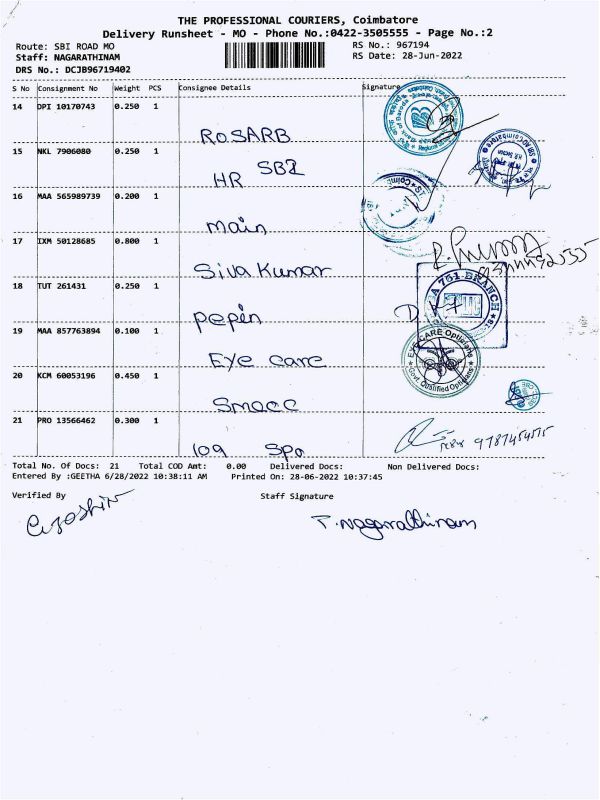 THE PROFESSIONAL COURIERS, Coimbatore
Delivery Runsheet - MO - Phone No.:0422-3505555 - Page No.:2
Route: SBI ROAD MO
RS No.: 967194
Staff: NAGARATHINAM
RS Date: 28-Jun-2022
DRS No.: DCJB96719402
S No Consignment No Weight PCS Consignee Details Signature
14 DPI 10170743 0.250 1
ROSARB
15 NKL 7906080 0.250 1
HR SBI
16 MAA 565989739 0.200 1
main
17 IXM 50128685 0.800 1
Siva Kumar
18 TUT 261431 0.250 1
pepin
A 751 BRANCH
19 MAA 857763894 0.100 1
Eye care
EYE CARE Opticians
Govt. Qualified Opticians
20 KCM 60053196 0.450 1
Smacc
21 PRO 13566462 0.300 1
log Spa
9787454575
Total No. Of Docs: 21 Total COD Amt: 0.00 Delivered Docs: Non Delivered Docs:
Entered By :GEETHA 6/28/2022 10:38:11 AM Printed On: 28-06-2022 10:37:45
Verified By Staff Signature
T. Nagarathinam